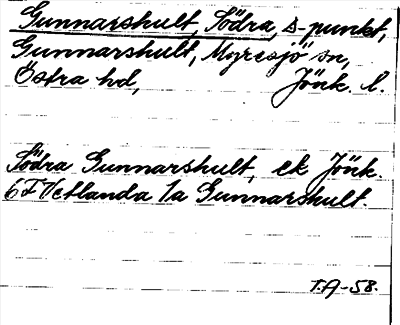 Gunnarshult, Södra, s-punkt,
Gunnarshult, Myresjö sn,
Östra hd, Jönk. l.
Södra Gunnarshult, ek Jönk.
6F Vetlanda 1a Gunnarshult.
T.A-58.